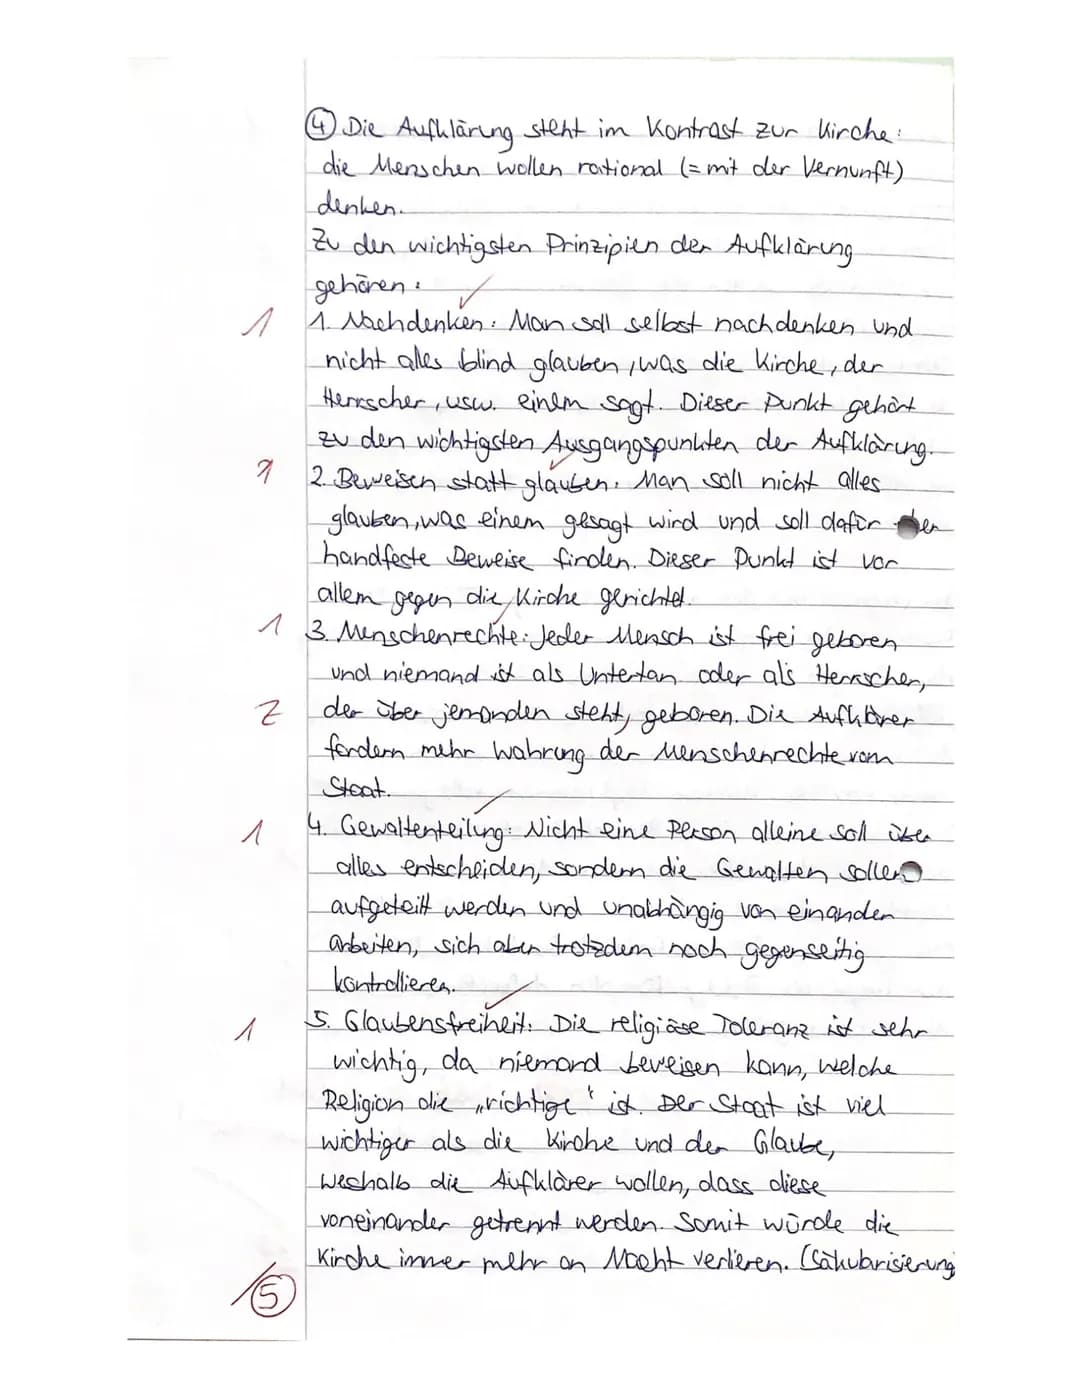 ④ Die Aufklärung steht im Kontrast zur Kirche:
die Menschen wollen rational (= mit der Vernunft)
denken.
Zu den wichtigsten Prinzipien der Aufklärung
gehören:
1 1. Nachdenken: Man soll selbst nachdenken und
nicht alles blind glauben, was die Kirche, der
Herrscher, usw. einem sagt. Dieser Punkt gehört
zu den wichtigsten Ausgangspunkten der Aufklärung.
1 2. Beweisen statt glauben: Man soll nicht alles
glauben, was einem gesagt wird und soll dafür
handfeste Beweise finden. Dieser Punkt ist vor
allem gegen die Kirche gerichtet.
1 3. Menschenrechte: Jeder Mensch ist frei geboren
und niemand ist als Untertan oder als Herrscher,
Z der über jemanden steht, geboren. Die Aufklärer
fordern mehr Wahrung der Menschenrechte vom
Staat.
1 4. Gewaltenteilung: Nicht eine Person alleine soll über
alles entscheiden, sondern die Gewalten sollen
aufgeteilt werden und unabhängig von einander
arbeiten, sich aber trotzdem noch gegenseitig
kontrollieren.
1 5. Glaubensfreiheit: Die religiöse Toleranz ist sehr
wichtig, da niemand beweisen kann, welche
Religion die „richtige“ ist. Der Staat ist viel
wichtiger als die Kirche und der Glaube,
weshalb die Aufklärer wollen, dass diese
voneinander getrennt werden. Somit würde die
Kirche immer mehr an Macht verlieren. (Säkularisierung
/5